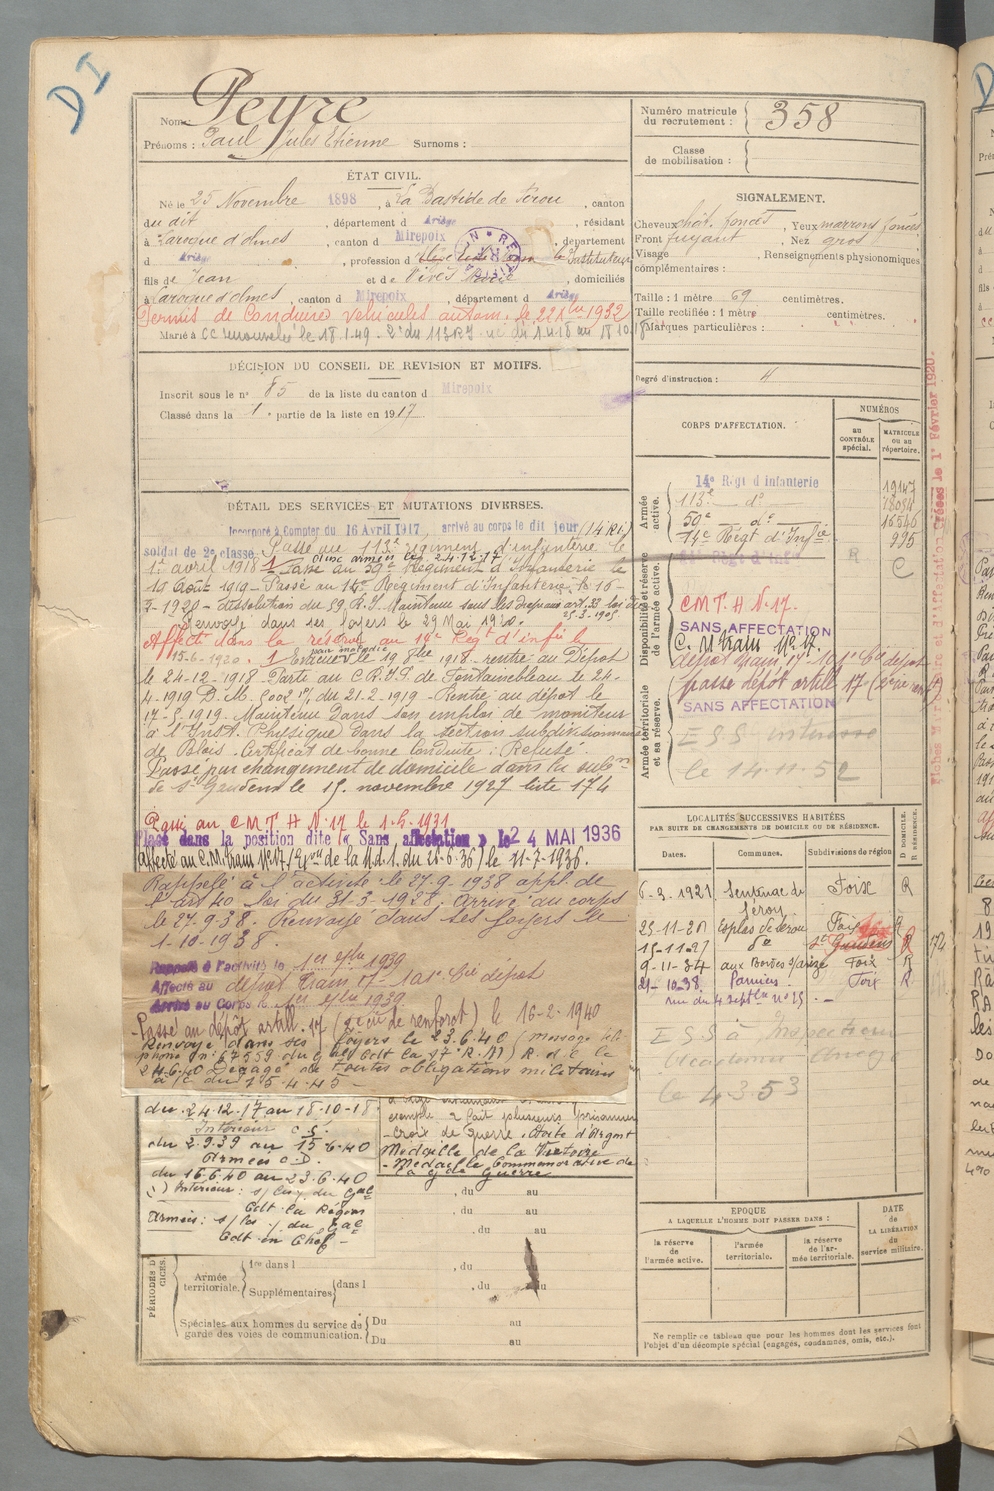 DI
Nom : Peyre
Prénoms : Paul Jules Etienne Surnoms :
Numéro matricule du recrutement : 358
Classe de mobilisation :
ÉTAT CIVIL.
Né le 25 Novembre 1898, à La Bastide de Sérou, canton
du dit, département d Ariège, résidant
à Laroque d'olmes, canton d Mirepoix, département
d Ariège, profession d Instituteur
fils de Jean et de Vivès Marie, domiciliés
à Laroque d'olmes, canton d Mirepoix, département d Ariège
Permis de Conduire véhicules autom. le 22 1932
Marié à
SIGNALEMENT.
Cheveux chât. foncés, Yeux marrons foncés
Front fuyant, Nez gros
Visage , Renseignements physionomiques
complémentaires :
Taille : 1 mètre 69 centimètres.
Taille rectifiée : 1 mètre centimètres.
Marques particulières :
Degré d'instruction : 4
DÉCISION DU CONSEIL DE REVISION ET MOTIFS.
Inscrit sous le n° 85 de la liste du canton d Mirepoix
Classé dans la 1e partie de la liste en 1917
DÉTAIL DES SERVICES ET MUTATIONS DIVERSES.
Incorporé à Compter du 16 Avril 1917, arrivé au corps le dit jour (14 RI)
soldat de 2e classe. Passé au 113e régiment d'infanterie le
1er avril 1918
Passé au 59e Régiment d'Infanterie le
19 Août 1919 - Passé au 14e Régiment d'Infanterie le 16-
3-1920 - dissolution du 59 R.I. Maintenu sous les drapeaux art. 33 loi du
25-3-1905
Renvoyé dans ses foyers le 29 Mai 1920.
Affecté dans la réserve au 14e Régt d'infie le
15-6-1920. Evacué le 19 8bre 1918 - rentré au Dépôt
pour maladie
le 24-12-1918 - Parti au C.R.I.P. de Fontainebleau le 24-
4-1919 D.M. du 21-2-1919 - Rentré au dépôt le
17-5-1919. Maintenu dans son emploi de moniteur
à l'Inst. Physique dans la section subdivisionnaire
de Blois. Certificat de bonne conduite : Refusé.
Passé par changement de domicile dans la subon
de St Gaudens le 15 novembre 1927 liste 174
Passé au CMT A N°17 le 1-5-1931
Placé dans la position dite « Sans affectation » le 24 MAI 1936
Affecté au C.M. train N°17 de la du 26-6-36) le 21-7-1936.
Rappelé à l'activité le 27-9-1938 appl. de
l'art 40 loi du 31-3-1928. Arrivé au corps
le 27-9-38. Renvoyé dans ses foyers le
1-10-1938.
Rappelé à l'activité le 1er 7bre 1939
Affecté au dépôt train 17 - 101e Cie dépôt
Arrivé au Corps le 1er 7bre 1939
Passé au dépôt artill. 17 de renfort) le 16-2-1940
Renvoyé dans ses foyers le 23.6.40 (message télé
phoné n° 67559 du gal Cdt la 17e R.M) R.d.c. le
24.6.40 Dégagé de toutes obligations militaires
à/c du 15.4.45
du 24.12.17 au 18-10-18
Intérieur C.S.
du 2.9.39 au 15-6-40
Armées C.D.
du 16.6.40 au 23.6.40
(1) Intérieur : s/ du Gal
Cdt la Région
Armées : s/ du Gal
Cdt en Chef
exemple a fait plusieurs prisonniers
- Croix de Guerre. étoile d'Argent
Médaille de la Victoire
- Médaille Commémorative de
la Gde Guerre
, du au
, du au
, du au
PÉRIODES D CICES.
Armée territoriale. 1re dans l , du
Supplémentaires dans l , du au
Spéciales aux hommes du service de garde des voies de communication. Du au
Du au
CORPS D'AFFECTATION.
NUMÉROS
au CONTRÔLE spécial.
MATRICULE ou au répertoire.
Armée active.
14e Régt d'infanterie 19147
113e d° 18094
50e d° 16546
14e Régt d'Infie 995
Disponibilité et réserve de l'armée active.
R
C
CMT. A N°17.
SANS AFFECTATION
C. M train N°17.
dépôt train 17 - 101e Cie dépôt
passé dépôt artill 17
Armée territoriale et sa réserve.
SANS AFFECTATION
ESS
le 14.11.52
Fiches Mre et d'Affectation créées le 1er Février 1920.
LOCALITÉS SUCCESSIVES HABITÉES
PAR SUITE DE CHANGEMENTS DE DOMICILE OU DE RÉSIDENCE.
Dates. Communes. Subdivisions de région D DOMICILE. R RÉSIDENCE.
6-3-1921 Sentenac de Sérou Foix R
Esplas de Sérou Foix R
15-11-27 d° St Gaudens R 174
9-11-34 aux Bordes s/arize Foix R
21-10-38 Pamiers Foix R
rue du 4 septbre n° 25
ESS à Inspection
Académie Ariège
le 4.3.53
EPOQUE
A LAQUELLE L'HOMME DOIT PASSER DANS :
la réserve de l'armée active.
l'armée territoriale.
la réserve de l'armée territoriale.
DATE de LA LIBÉRATION du service militaire.
Ne remplir ce tableau que pour les hommes dont les services font
l'objet d'un décompte spécial (engagés, condamnés, omis, etc.).